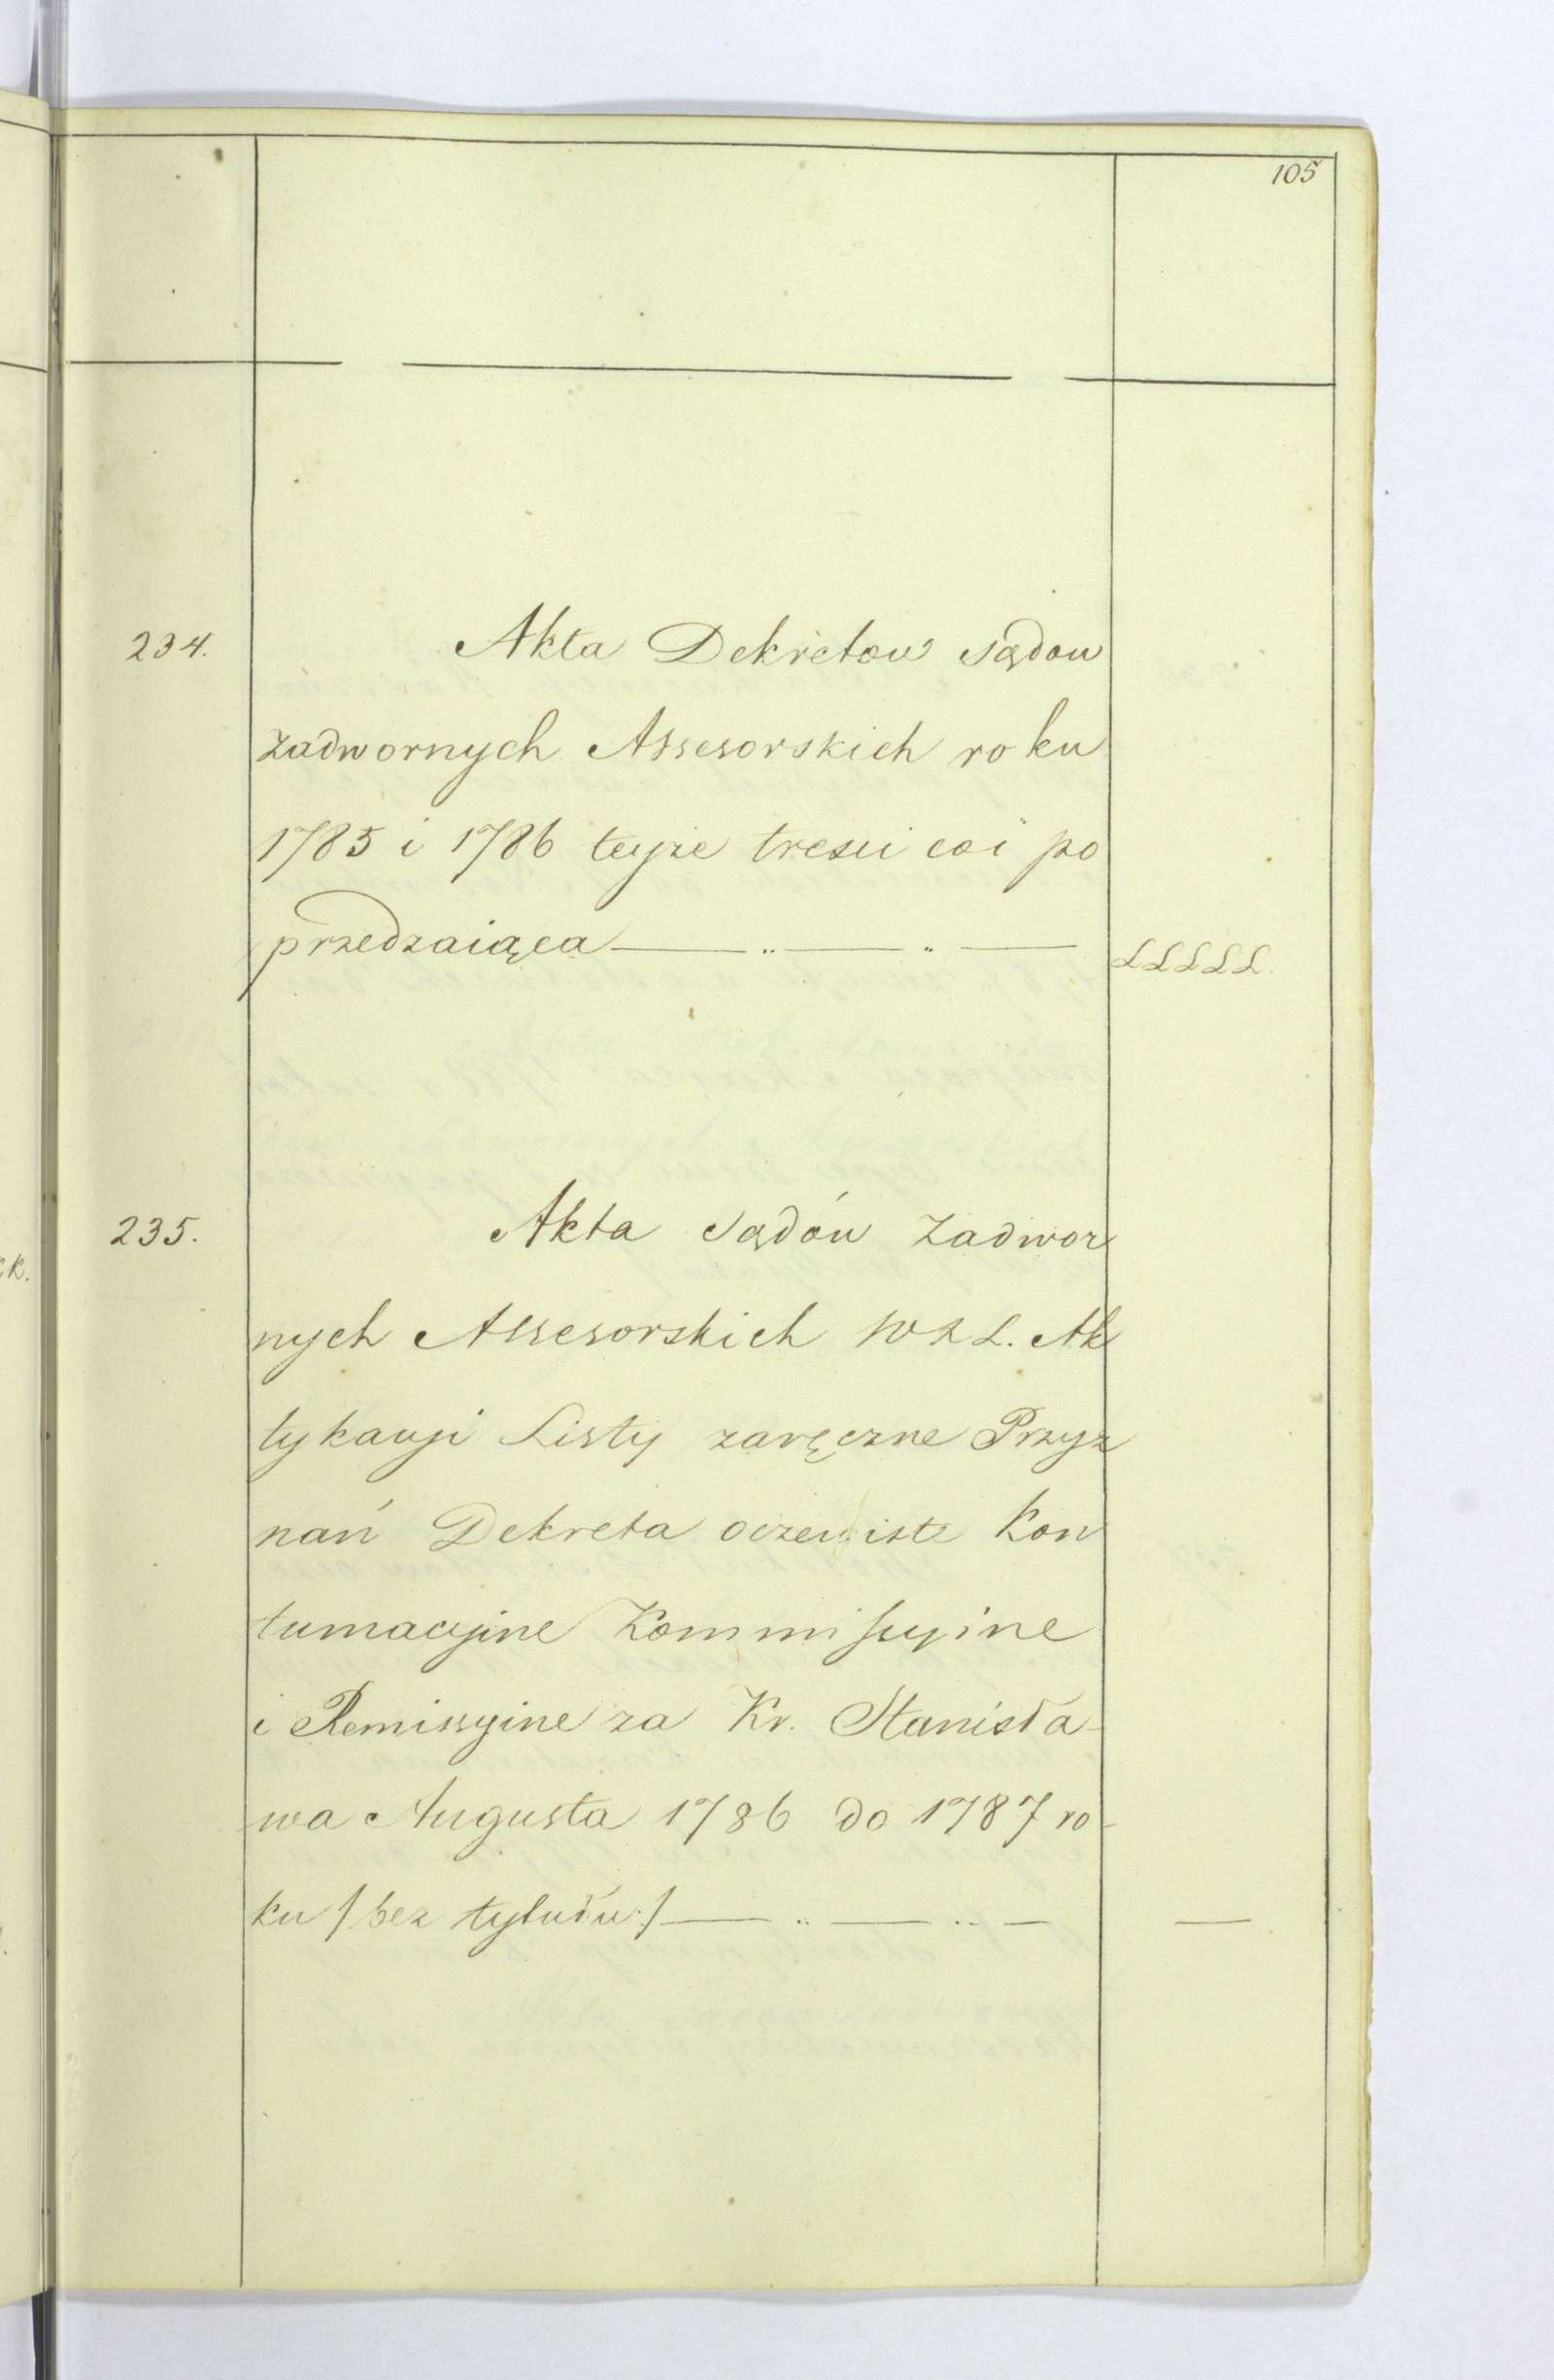 105
234. Akta Dekretow sądow
zadwornych Assesorskich roku
1785 i 1786 teyże tresci co i po
przedzaiąca — .. — .. — LLLLL.
235. Akta Sądów Zadwor
nych Assesorskich W X L. Ak
tykacyi Listy zaręczne Przyz
nań Dekreta oczewiste Kon
tumacyjne Kommissyine
i Remissyine za Kr. Stanisła-
wa Augusta 1786 do 1787 ro-
ku /bez tytułu:/ — .. — .. — —